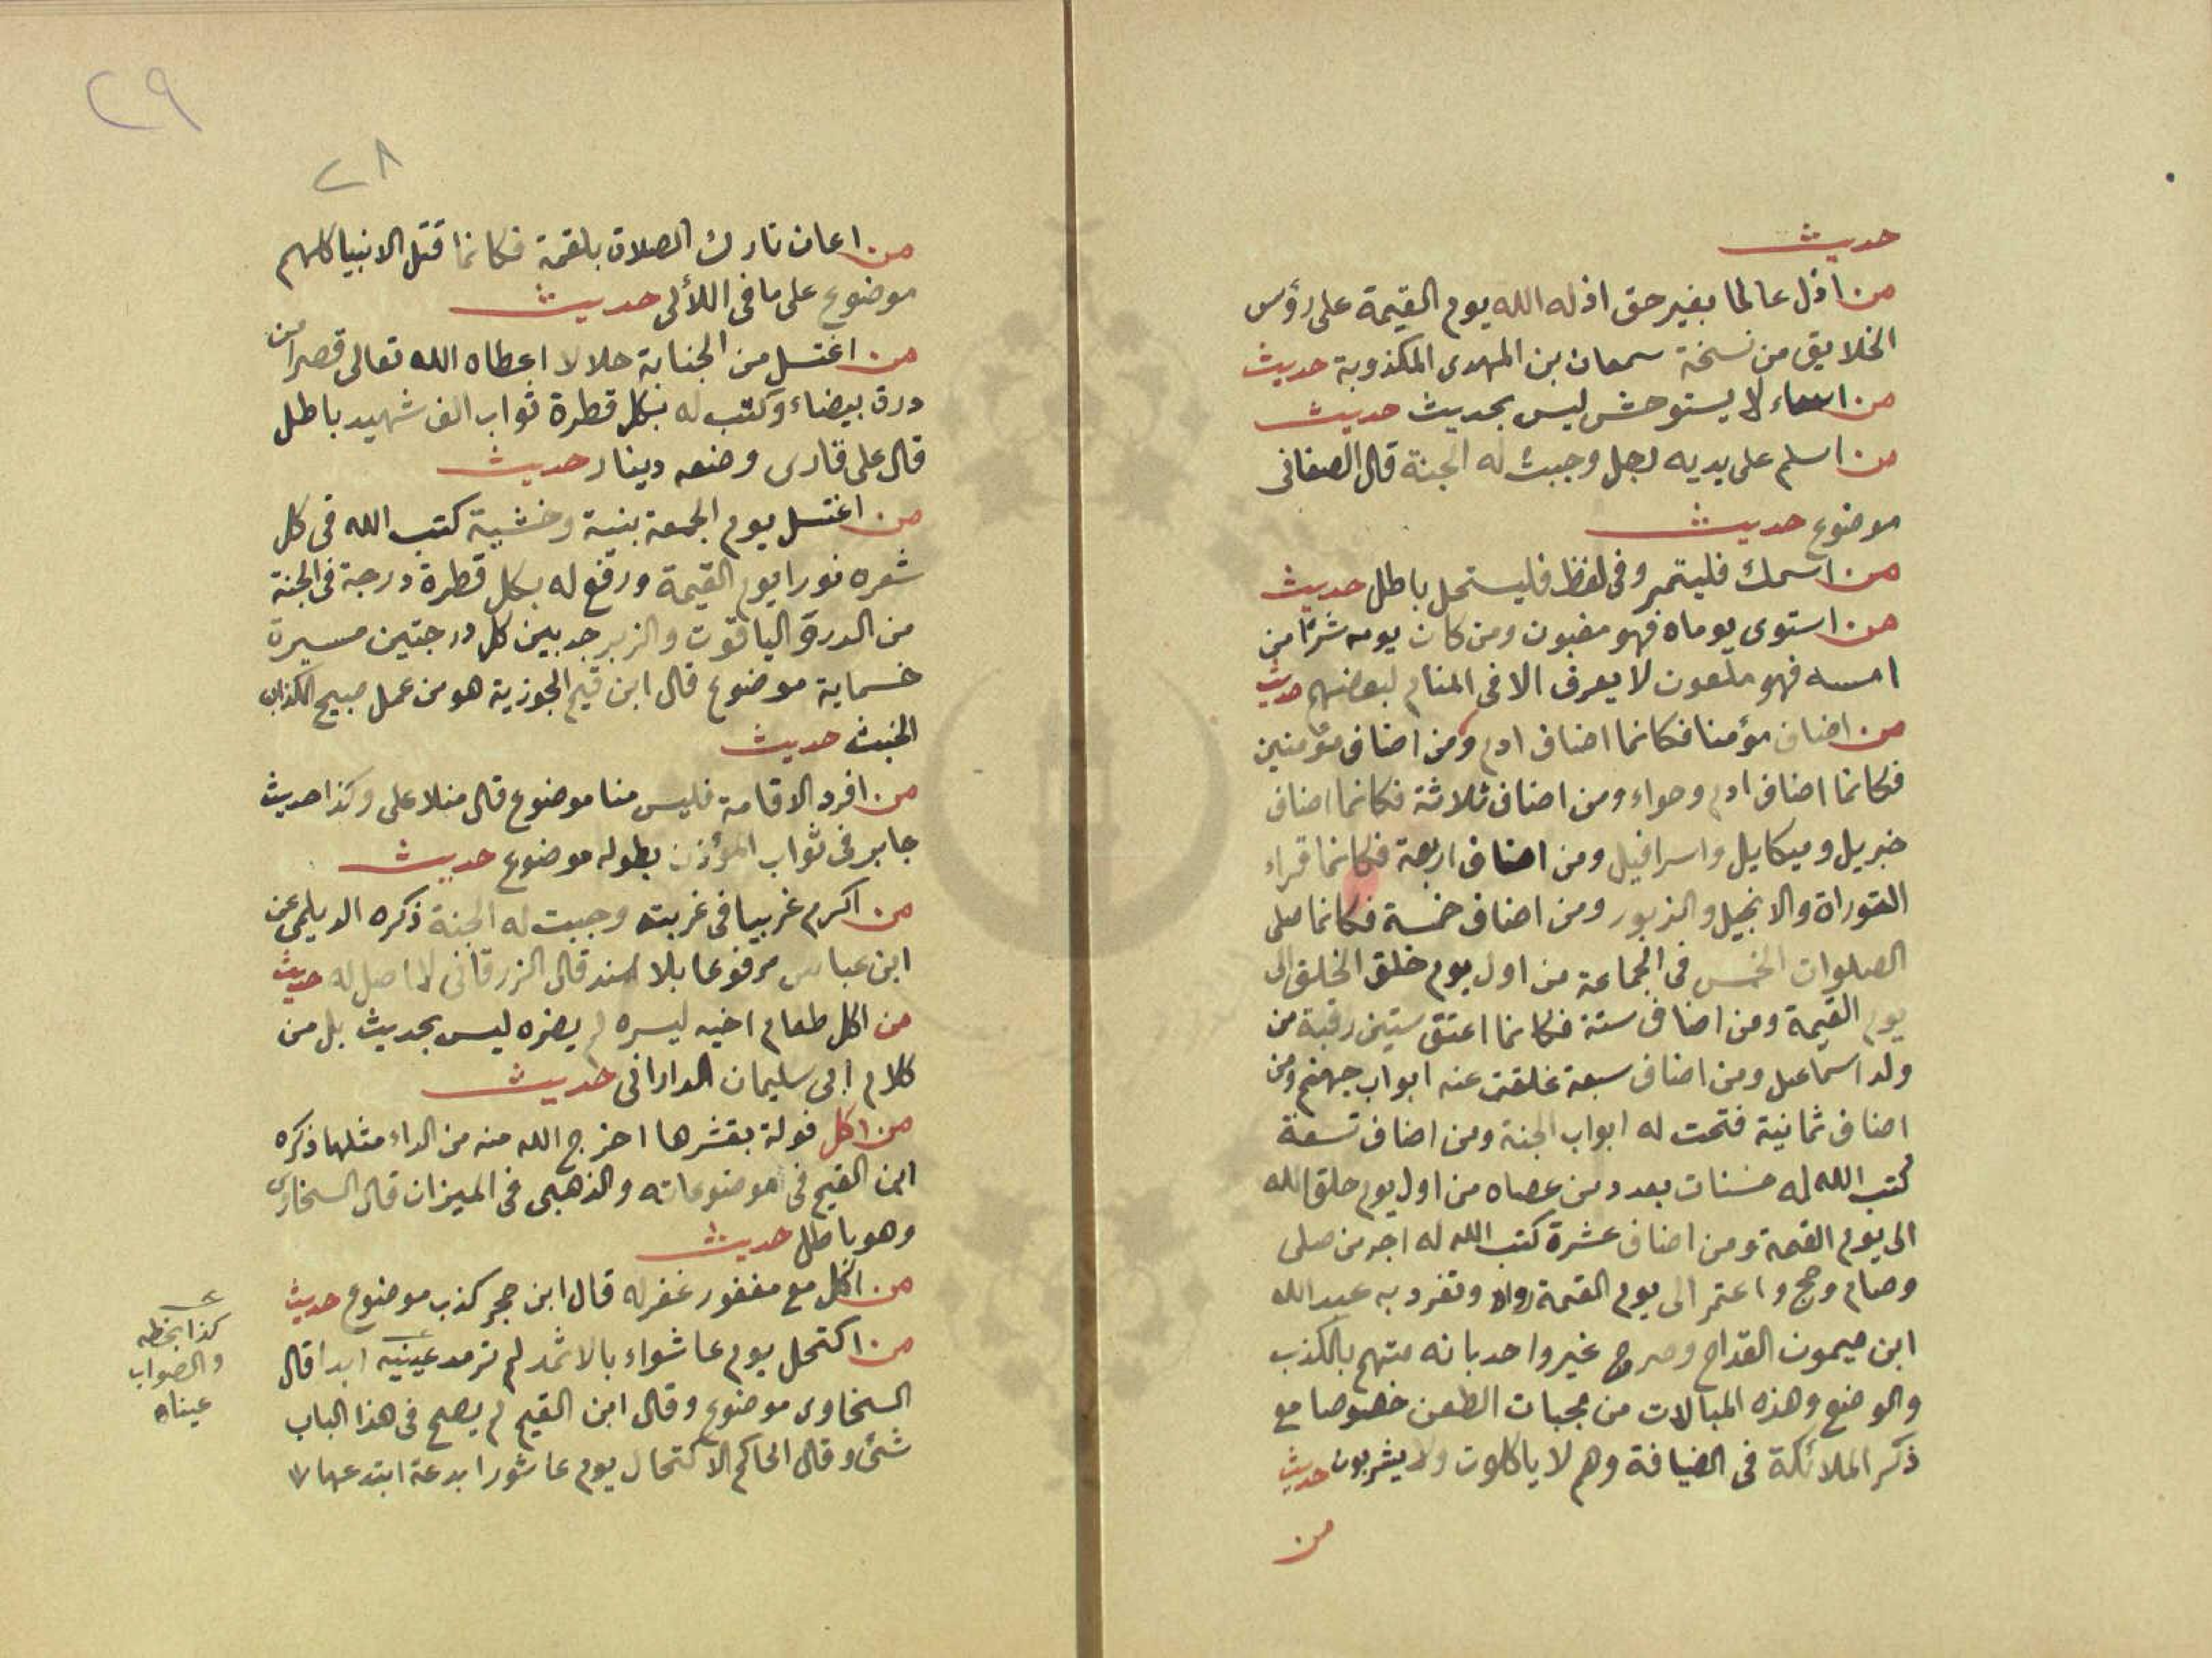 حديث
من اذل عالما بغير حق اذله الله يوم القيمة على رؤس
الخلايق من نسخة سمعان بن المهدى المكذوبة حديث
من اساء لا يستوحش ليس بحديث حديث
من اسلم على يديه رجل وجبت له الجنة قال الصغانى
موضوع حديث
من اسمك فليتمر وفى لفظ فليستحل باطل حديث
من استوى يوماه فهو مغبون ومن كان يومه شرا من
امسه فهو ملعون لا يعرف الا فى المنام لبعضهم حديث
من اضاف مؤمنا فكانما اضاف ادم ومن اضاف مؤمنين
فكانما اضاف ادم وحواء ومن اضاف ثلاثة فكانما اضاف
جبريل وميكايل واسرافيل ومن اضاف اربعة فكانما قراء
التوراة والانجيل والزبور ومن اضاف خمسة فكانما صلى
الصلوات الخمس فى الجماعة من اول يوم خلق الخلق الى
يوم القيمة ومن اضاف ستة فكانما اعتق ستين رقبة من
ولد اسماعيل ومن اضاف سبعة غلقت عنه ابواب جهنم ومن
اضاف ثمانية فتحت له ابواب الجنة ومن اضاف تسعة
كتب الله له حسنات بعدد من عصاه من اول يوم خلق الله
الى يوم القيمة ومن اضاف عشرة كتب الله له اجر من صلى
وصام وحج واعتمر الى يوم القيمة رواه وتفرد به عبد الله
ابن ميمون القداح وصرح غير واحد بانه متهم بالكذب
والوضع وهذه المبالات من مجبات الطعن خصوصا مع
ذكر الملائكة فى الضيافة وهم لا ياكلون ولا يشربون حديث
من
٢٩
٢٨
من اعان تارك الصلاة بلقمة فكانما قتل الانبيا كلهم
موضوع على ما فى اللألى حديث
من اغتسل من الجنابة حلالا اعطاه الله تعالى قصرا من
درة بيضاء وكتب له بكل قطرة ثواب الف شهيد باطل
قال على قارى وضعه دينار حديث
من اغتسل يوم الجمعة بنية وخشية كتب الله فى كل
شعره نورا يوم القيمة ورفع له بكل قطرة درجة فى الجنة
من الدرة الياقوت والزبرجد بين كل درجتين مسيرة
خسماية موضوع قال ابن قيم الجوزية هو من عمل صبيح الكذاب
الخبيث حديث
من افرد الاقامة فليس منا موضوع قال منلا على وكذا حديث
جابر فى ثواب المؤذن بطوله موضوع حديث
من اكرم غريبا فى غربته وجبت له الجنة ذكره الديلمى عن
ابن عباس مرفوعا بلا سند قال الزرقانى لا اصل له حديث
من اكل طعام اخيه ليسره لم يضره ليس بحديث بل من
كلام ابى سليمان الدارانى حديث
من اكل فولة بقشرها اخرج الله منه من الداء مثلها ذكره
ابن القيم فى موضوعاته والذهبى فى الميزان قال السخاوى
وهو باطل حديث
من اكل مع مغفور غفر له قال ابن حجر كذب موضوع حديث
من اكتحل يوم عاشواء بالاثمد لم ترمد عينيه ابدا قال
السخاوى موضوع وقال ابن القيم لم يصح فى هذا الباب
شئ وقال الحاكم الاكتحال يوم عاشورا بدعة ابتدعها
كذا بخطه
والصواب
عيناه